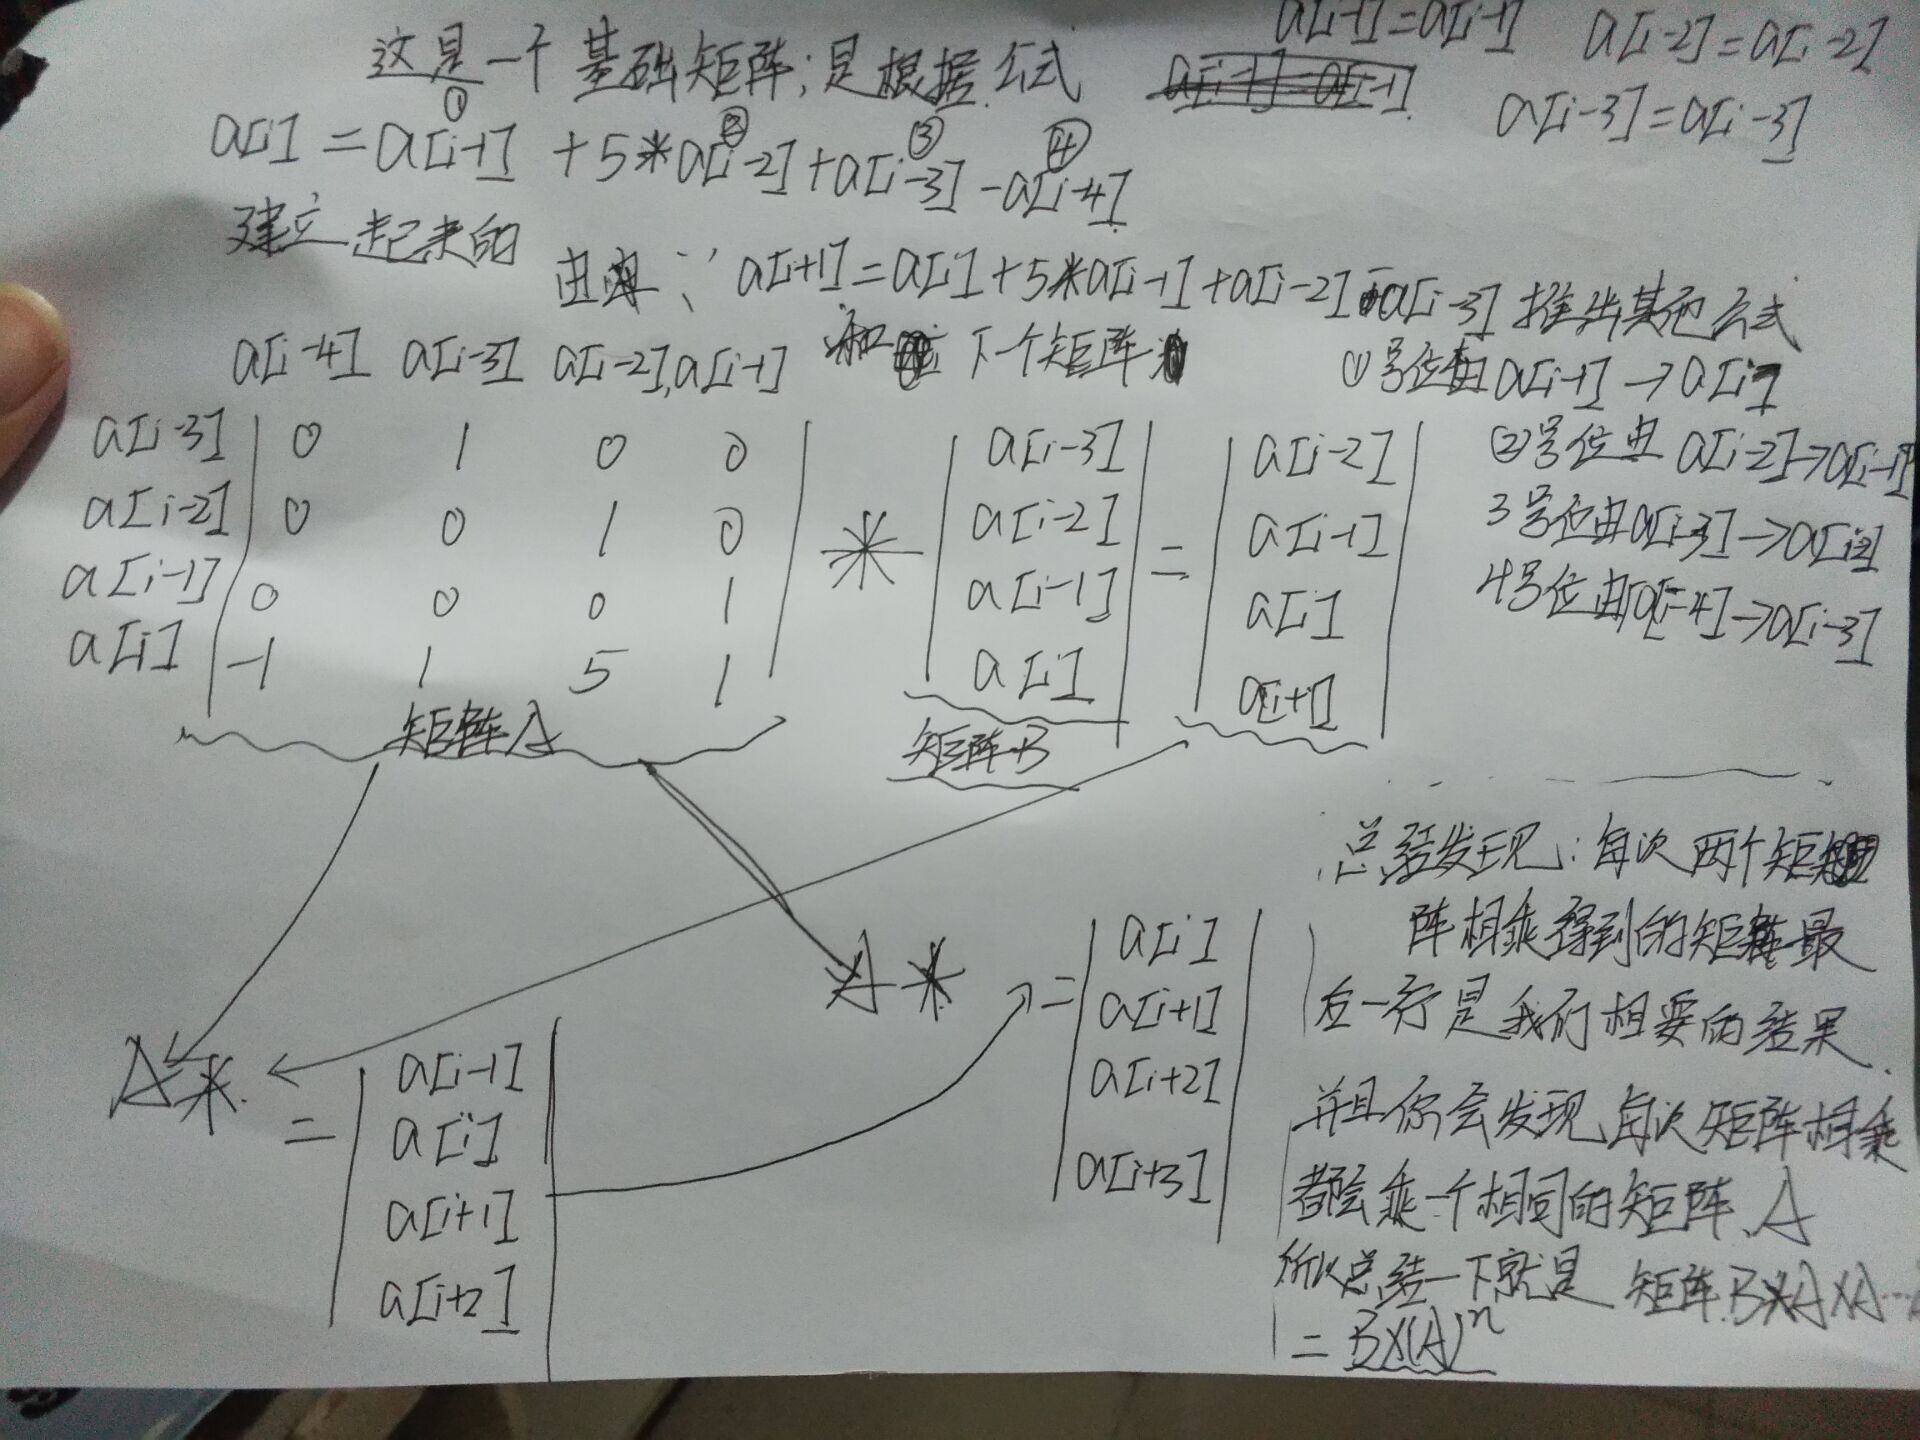 这是一个基础矩阵;是根据公式
a[i-1]=a[i-1] a[i-2]=a[i-2]
a[i-3]=a[i-3]
① ② ③ ④
a[i]=a[i-1]+5*a[i-2]+a[i-3]-a[i-4]
建立起来的
a[i+1]=a[i]+5*a[i-1]+a[i-2]-a[i-3] 推出其他公式
a[i-4] a[i-3] a[i-2],a[i-1] 和 下一个矩阵
①号位由a[i-1]→a[i]
②号位由a[i-2]→a[i-1]
3号位由a[i-3]→a[i-2]
4号位由a[i-4]→a[i-3]
a[i-3] 0 1 0 0 a[i-3] a[i-2]
a[i-2] 0 0 1 0 * a[i-2] = a[i-1]
a[i-1] 0 0 0 1 a[i-1] a[i]
a[i] -1 1 5 1 a[i] a[i+1]
矩阵A 矩阵B
A* = a[i-1]
a[i]
a[i+1]
a[i+2]
A* = a[i]
a[i+1]
a[i+2]
a[i+3]
总结发现:每次两个矩
阵相乘得到的矩阵最
后一行是我们相要的结果
并且你会发现每次矩阵相乘
都会乘一个相同的矩阵A
所以总结一下就是 矩阵B×A×A…
=B×(A)ⁿ